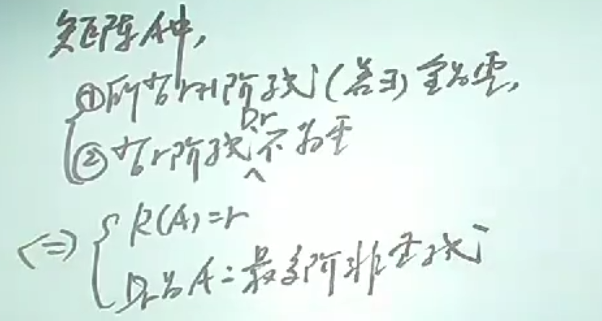 矩阵A中,
①所有r+1阶子式(若∃)全为零,
②有r阶子式Dr不为零
<=> { R(A)=r
Dr为A之最高阶非零子式